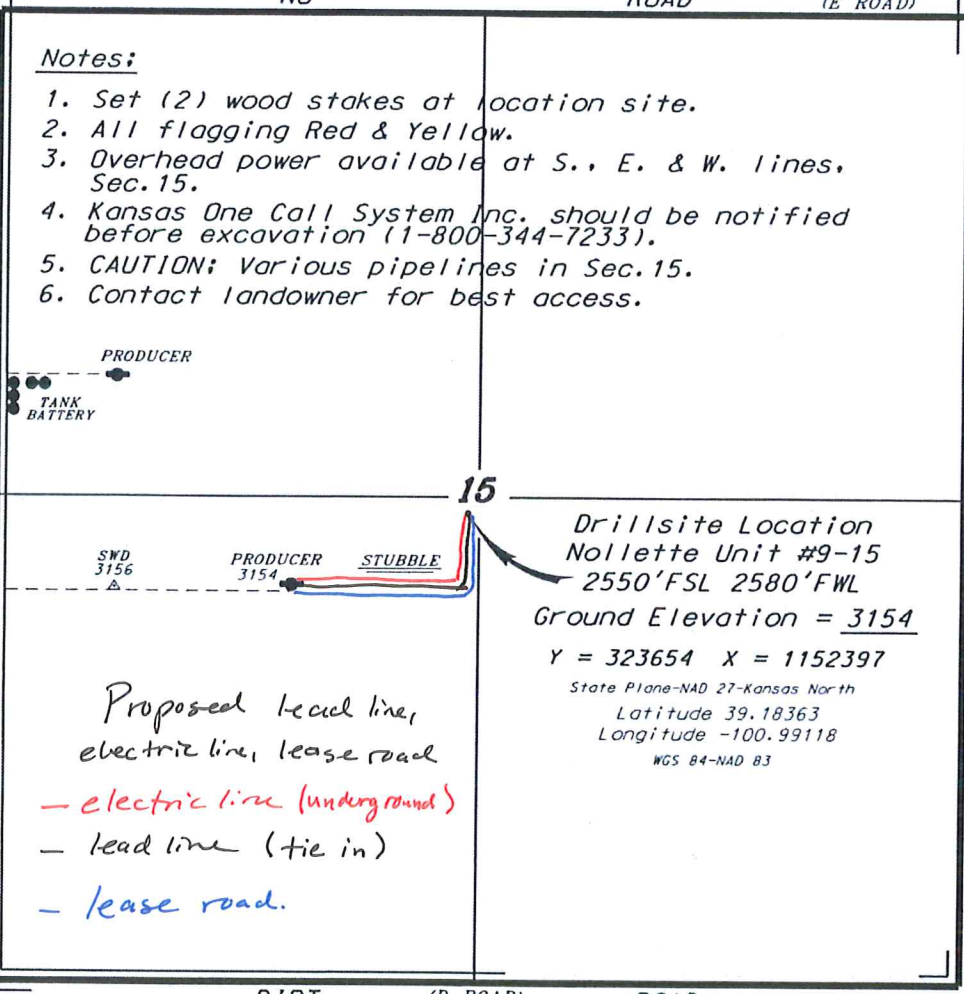 NO ROAD (E ROAD)
Notes:
1. Set (2) wood stakes at location site.
2. All flagging Red & Yellow.
3. Overhead power available at S., E. & W. lines,
Sec.15.
4. Kansas One Call System Inc. should be notified
before excavation (1-800-344-7233).
5. CAUTION: Various pipelines in Sec.15.
6. Contact landowner for best access.
PRODUCER
TANK
BATTERY
15
SWD
3156
PRODUCER
3154
STUBBLE
Drillsite Location
Nollette Unit #9-15
2550'FSL 2580'FWL
Ground Elevation = 3154
Y = 323654 X = 1152397
State Plane-NAD 27-Kansas North
Latitude 39.18363
Longitude -100.99118
WGS 84-NAD 83
Proposed lead line,
electric line, lease road
— electric line (underground)
— lead line (tie in)
— lease road.
DIRT (D ROAD) ROAD